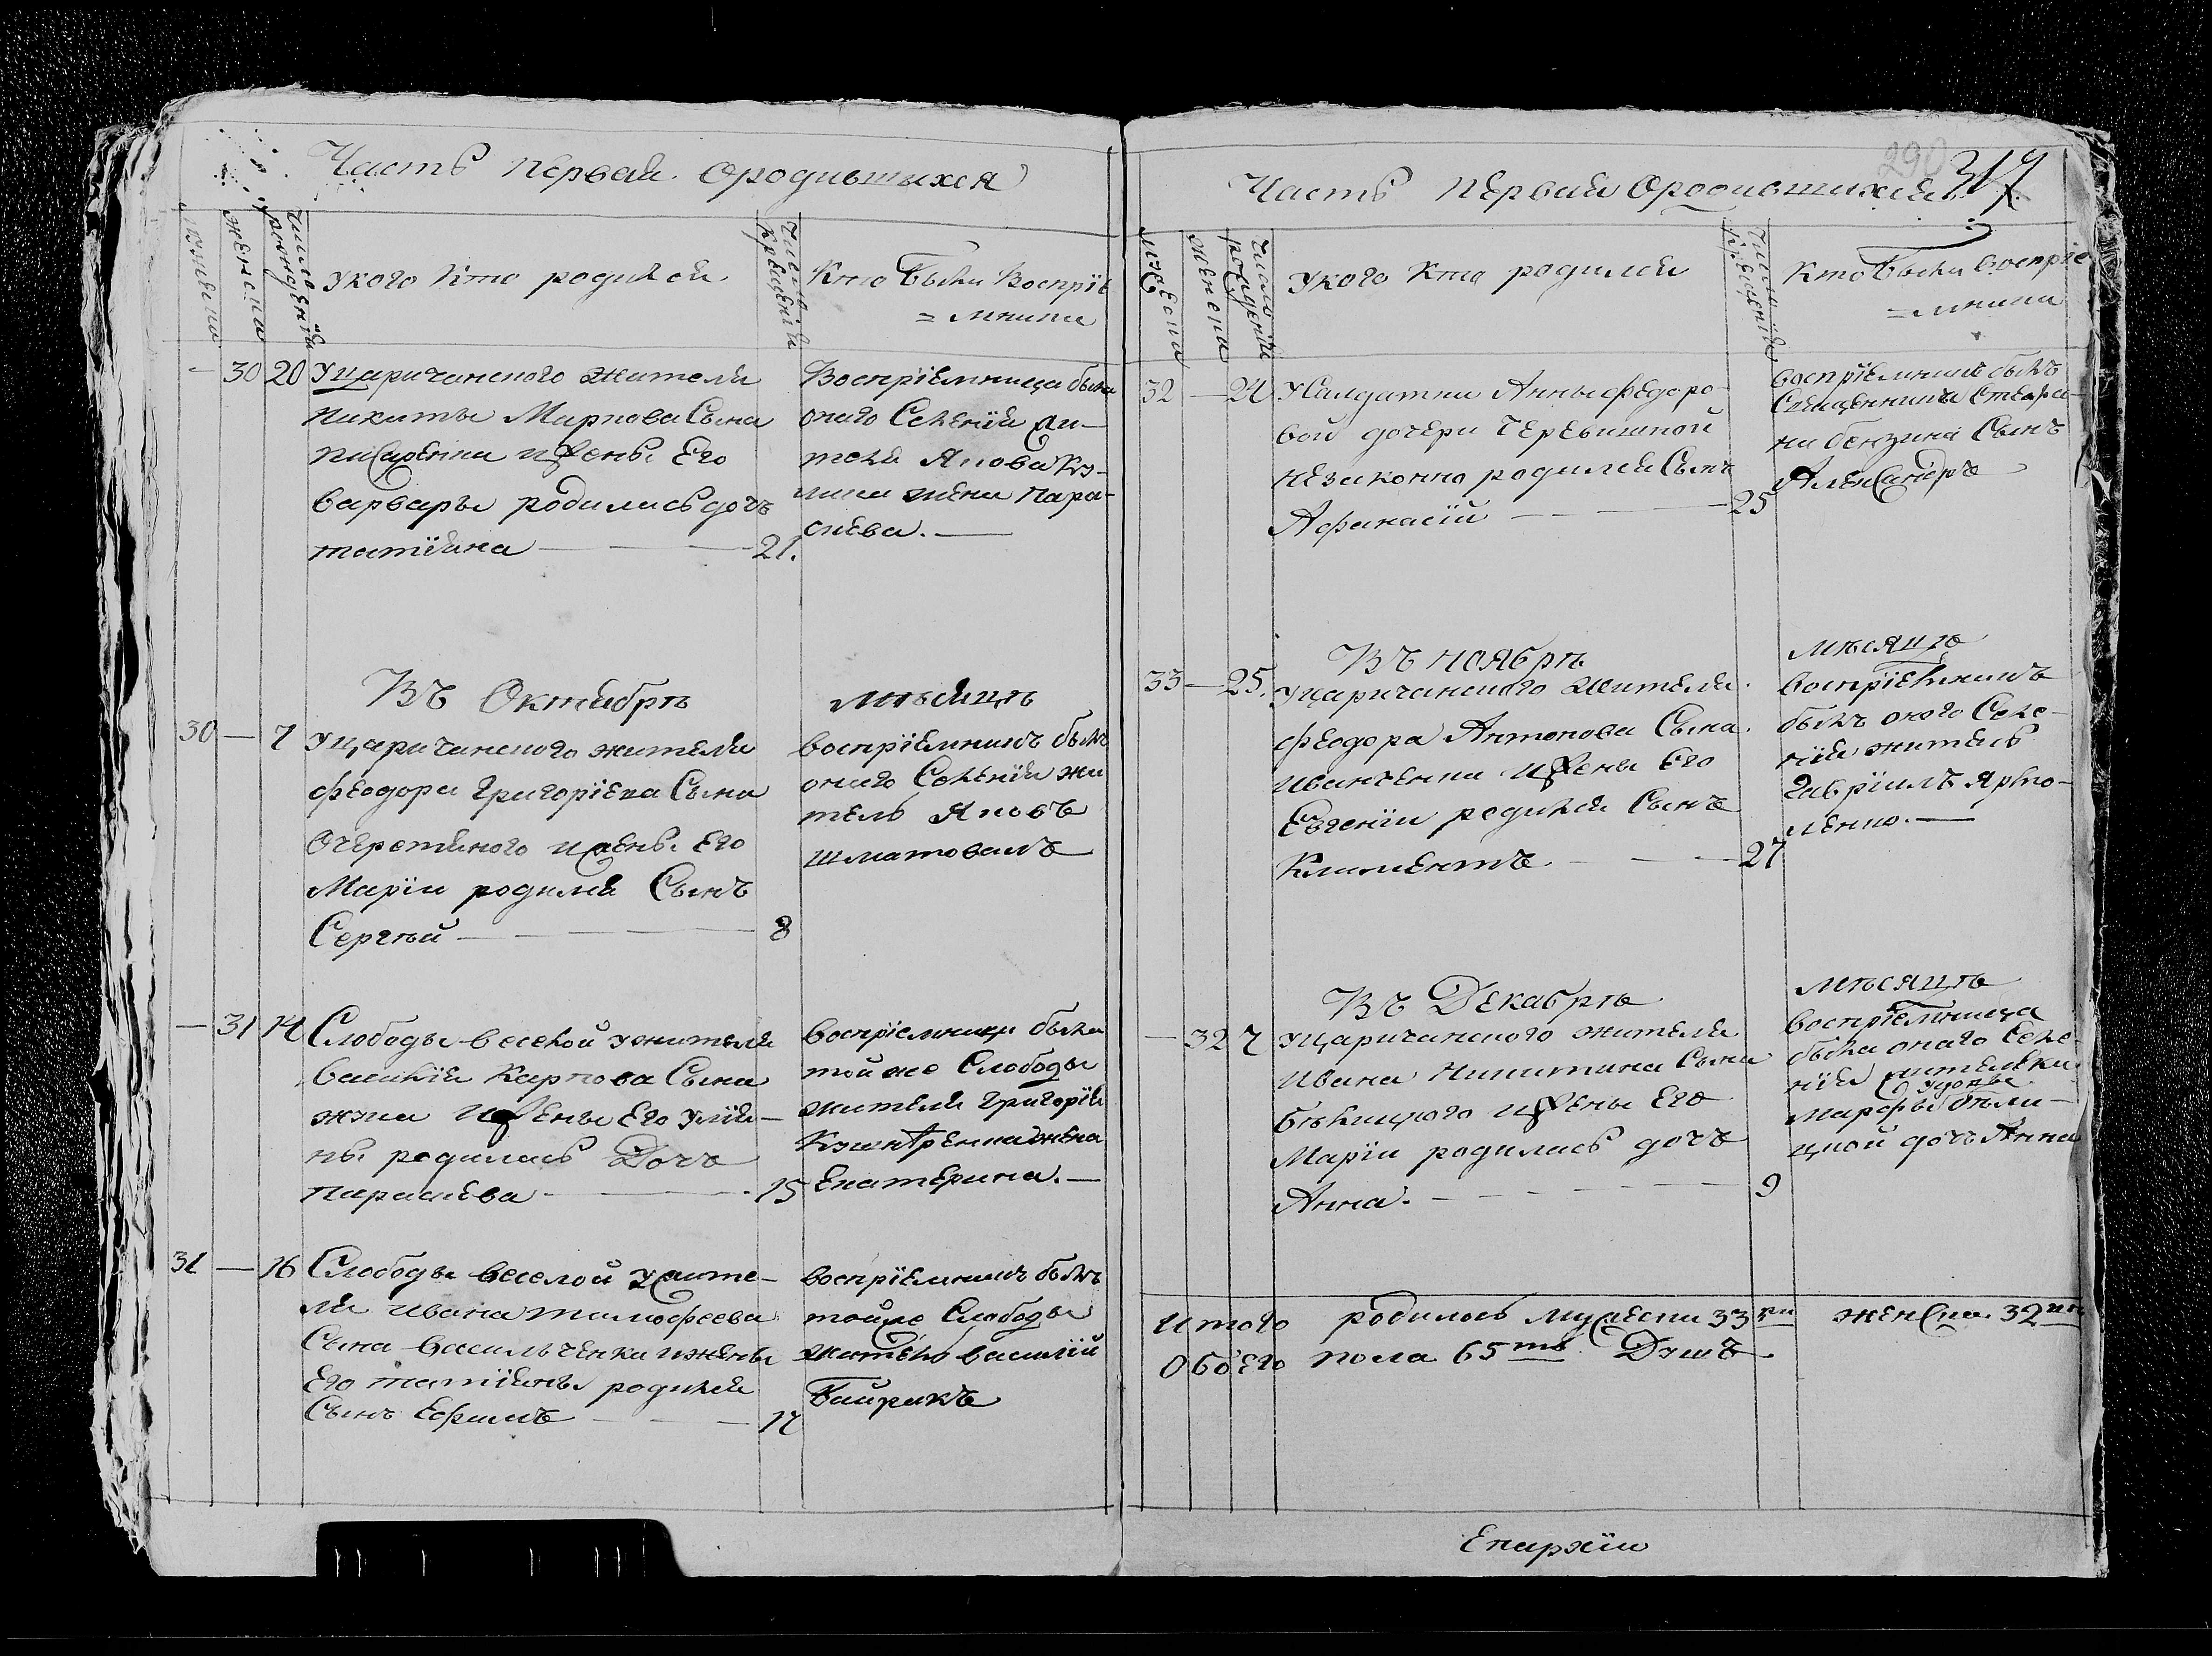 Часть первая ородившихся
мужеска
женска
Число рожденія
Укого кто родился
Число крещенія
Кто были Воспріе
=мники
— 30 20 Уцаричанского жителя
Никиты Маркова Сына
Писаренка ижены Его
Варвары родилась дочь
татіяна — 21.
Воспріемница была
оного Селенія жи-
теля Якова Ку-
жена Пара-
скева. —
Въ Октябрѣ мѣсяцѣ
30 — 7 Уцаричанского жителя
Феодора Григоріева Сына
Очеретяного ижены Его
Маріи родился Сынъ
Сергѣй — 8
воспріемникъ былъ
оного Селенія жи
тель Яковъ
Шматовалъ
— 31 14 Слободы веселой ужителя
Василія Карпова Сына
ижены Его Уліян-
ны родилась Дочь
параскева — 15
воспріемница была
той же Слободы
жителя Григорія
жена
Екатерина. —
31 — 16 Слободы веселой ужите-
ля Ивана тимофеева
Сына Васильченка ижены
Его татіяны родился
Сынъ Ефимъ — 17
воспріемникъ былъ
тойже Слободы
житель василій
Байракъ
290
317
Часть первая Ородившихся
мужеска
женска
Число рожденія
Укого Кто родился
Число крещенія
Кто были воспріе
=мники
32 — 24 УСалдатки Анны Федоро-
вой дочери Черевишной
незаконно родился Сынъ
Афанасій — 25
воспріемникъ былъ
Священника Стефа-
на бензина Сынъ
Александръ
Въ ноябрѣ мѣсяцѣ
33 — 25. Уцаричанского жителя
Феодора Антонова Сына
Иванченка ижены Его
Евгеніи родился Сынъ
Климентъ. — 27
воспріемникъ
былъ оного Селе-
нія житель
Гавріилъ Ярмо-
ленко. —
Въ Декабрѣ мѣсяцѣ
— 32 7 Уцаричанского жителя
Ивана Никитина Сына
бѣлицкого ижены Его
Маріи родилась дочь
Анна. — 9
воспріемница
была оного Селе-
нія жителки
вдовы
Марфы бѣли-
цкой дочь Анна
Итого родилось мужеска 33ри женска 32ве
Обоего пола 65ть Душъ.
Епархіи